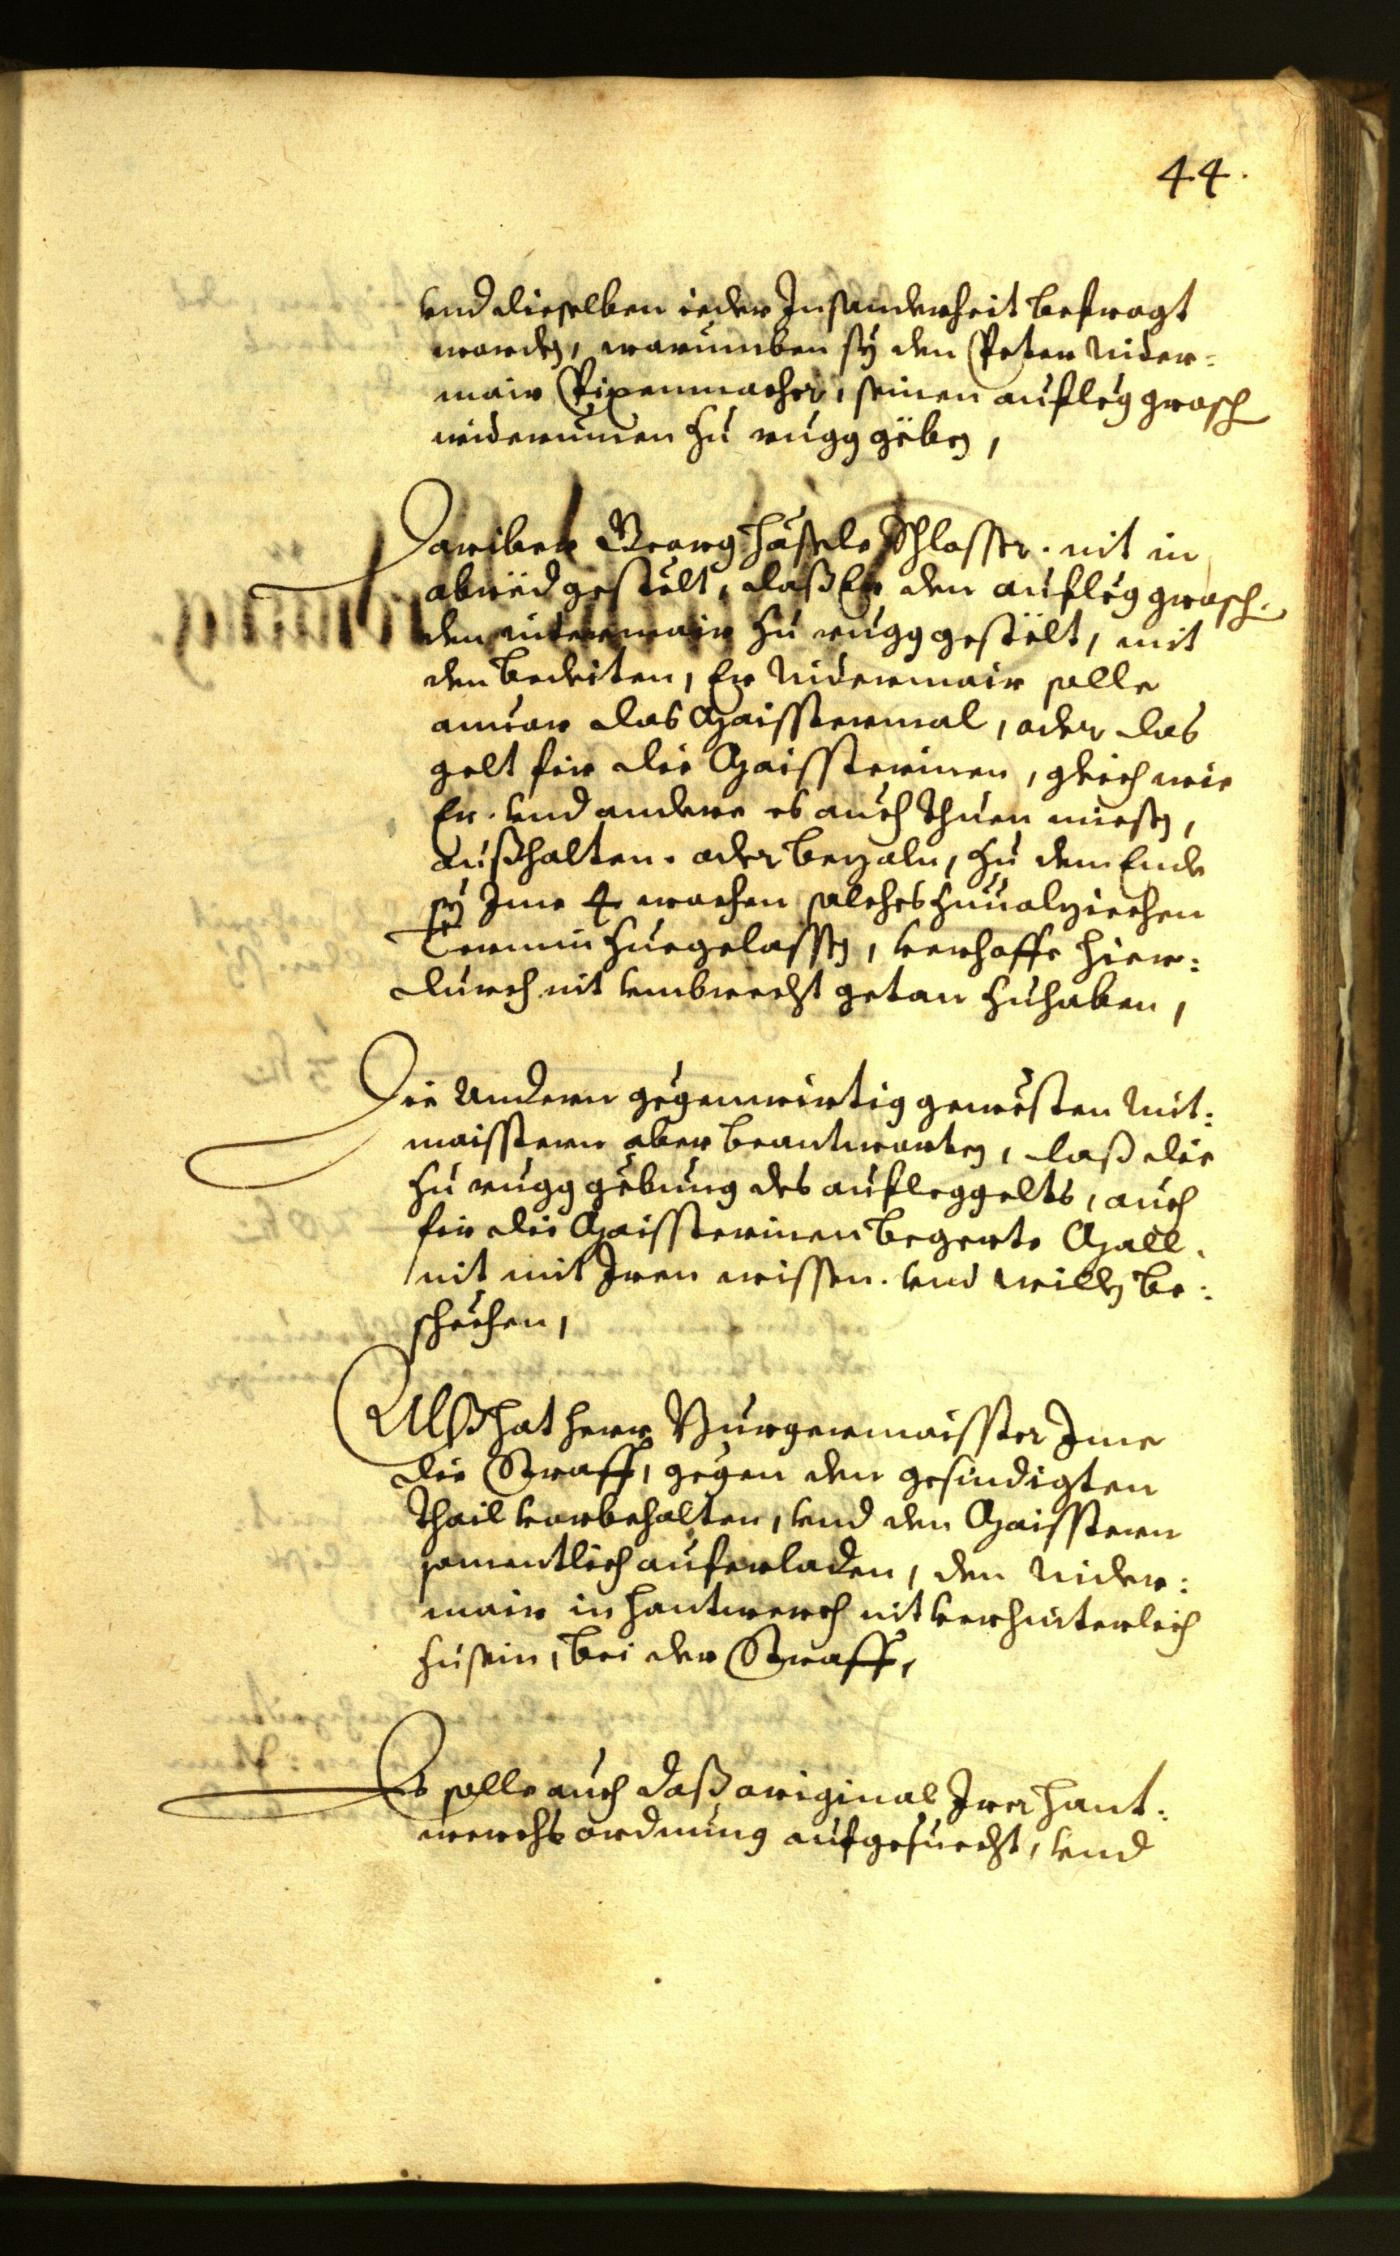 44.
vnd dieselben ieder Insonderheit befragt
worden, warumben sÿ den Peter Nider-
mair Pixenmacher, seinen aufleg grosch
widerumen zu rugg geben,
Dariber Georg Häfele Schlosser. nit in
abred gestelt, daß Er den aufleg grosch.
den nidermair zu rugg gestelt, mit
den bedeiten, Er Nidermair solle
anuor das Maisstermal, oder das
gelt fir die Maissterinen, gleich wie
Er. vnd andere es auch thuen miessen,
außhalten. oder bezaln, zu dem Ende
sÿ Ime 4 wochen solches zuuolziechen
Termin zuegelassen, verhoffe hier-
durch nit vnbrecht getan zuhaben,
Die Andern gegenwirtig gewesten Mit-
maisstern aber beantworten, daß die
zu rugg gebung des aufleggelts, auch
fir die Maissterinen begerte Mall.
nit mit Iren wissen. vnd willen be-
schechen,
Alß hat herr Burgermaisster Ime
die Straff, gegen den gesindigten
thail vorbehalten, vnd den Maisstern
samentlich auferladen, den Nider-
mair in hantwerch nit verhinterlich
zusein, bei der Straff,
Es solle auch daß original Irer hant-
werchs ordnung aufgesuecht, vnd